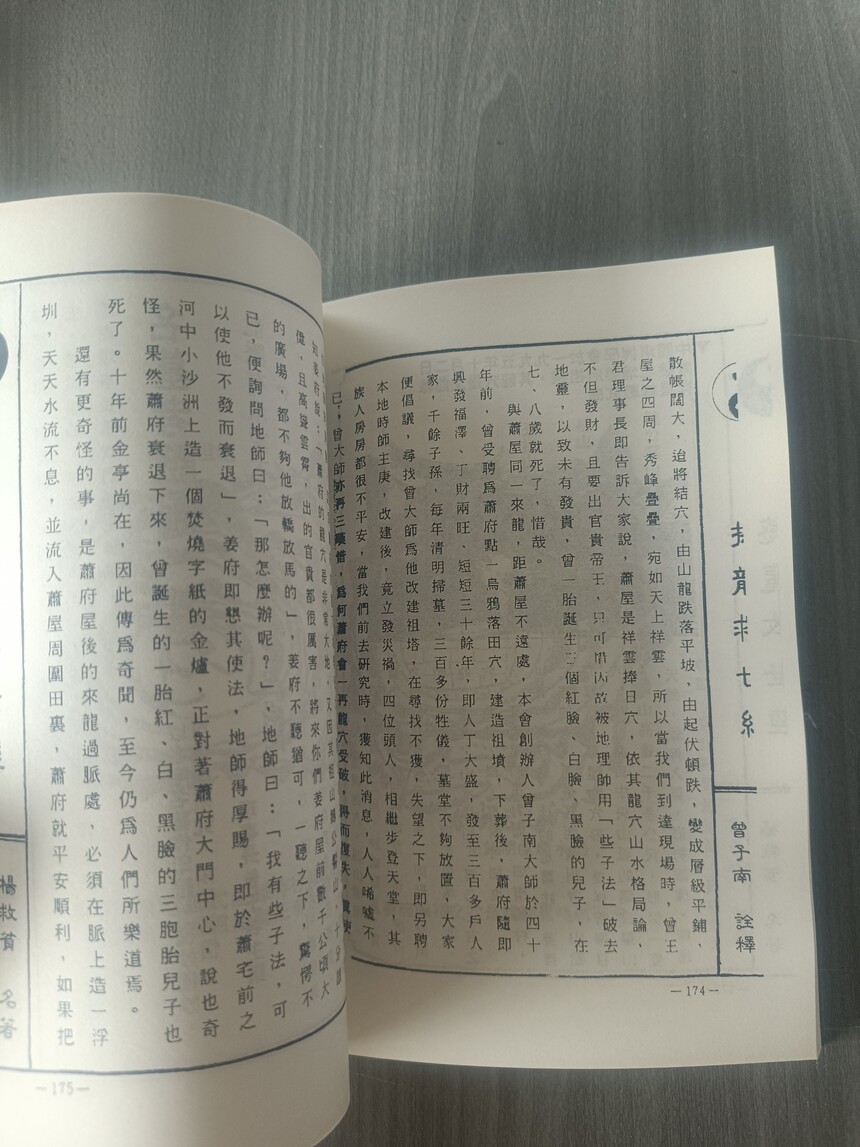 曾子南 詮釋
散帳闊大，迨將結穴，由山龍跌落平坡，由起伏頓跌，變成層級平鋪，
屋之四周，秀峰疊疊，宛如天上祥雲，所以當我們到達現場時，曾王
君理事長即告訴大家說，蕭屋是祥雲捧日穴，依其龍穴山水格局論，
不但發財，且要出官貴帝王，只可惜因故被地理師用「些子法」破去
地靈，以致未有發貴，曾一胎誕生三個紅臉、白臉、黑臉的兒子，在
七、八歲就死了，惜哉。
與蕭屋同一來龍，距蕭屋不遠處，本會創辦人曾子南大師於四十
年前，曾受聘爲蕭府點一烏鴉落田穴，建造祖墳，下葬後，蕭府隨即
興發福澤、丁財兩旺、短短三十餘年，即人丁大盛，發至三百多戶人
家，千餘子孫，每年清明掃墓，三百多份牲儀，墓堂不夠放置，大家
便倡議，尋找曾大師爲他改建祖塔，在尋找不獲，失望之下，即另聘
本地時師主庚，改建後，竟立發災禍，四位頭人，相繼步登天堂，其
族人房房都很不平安，當我們前去研究時，獲知此消息，人人唏噓不
已，曾大師亦再三嘆惜，爲何蕭府會一再龍穴受破，得而復失，
—174—
偉，且高聳雲霄，出的官貴都很厲害，將來你們姜府屋前數千公頃大
的廣場，都不夠他放轎放馬的」，姜府不聽猶可，一聽之下，驚愕不
已，便詢問地師曰：「那怎麼辦呢？」，地師曰：「我有些子法，可
以使他不發而衰退」，姜府即懇其使法，地師得厚賜，即於蕭宅前之
河中小沙洲上造一個焚燒字紙的金爐，正對著蕭府大門中心，說也奇
怪，果然蕭府衰退下來，曾誕生的一胎紅、白、黑臉的三胞胎兒子也
死了。十年前金亭尚在，因此傳爲奇聞，至今仍爲人們所樂道焉。
還有更奇怪的事，是蕭府屋後的來龍過脈處，必須在脈上造一浮
圳，天天水流不息，並流入蕭屋周圍田裏，蕭府就平安順利，如果把
楊救貧 名著
—175—